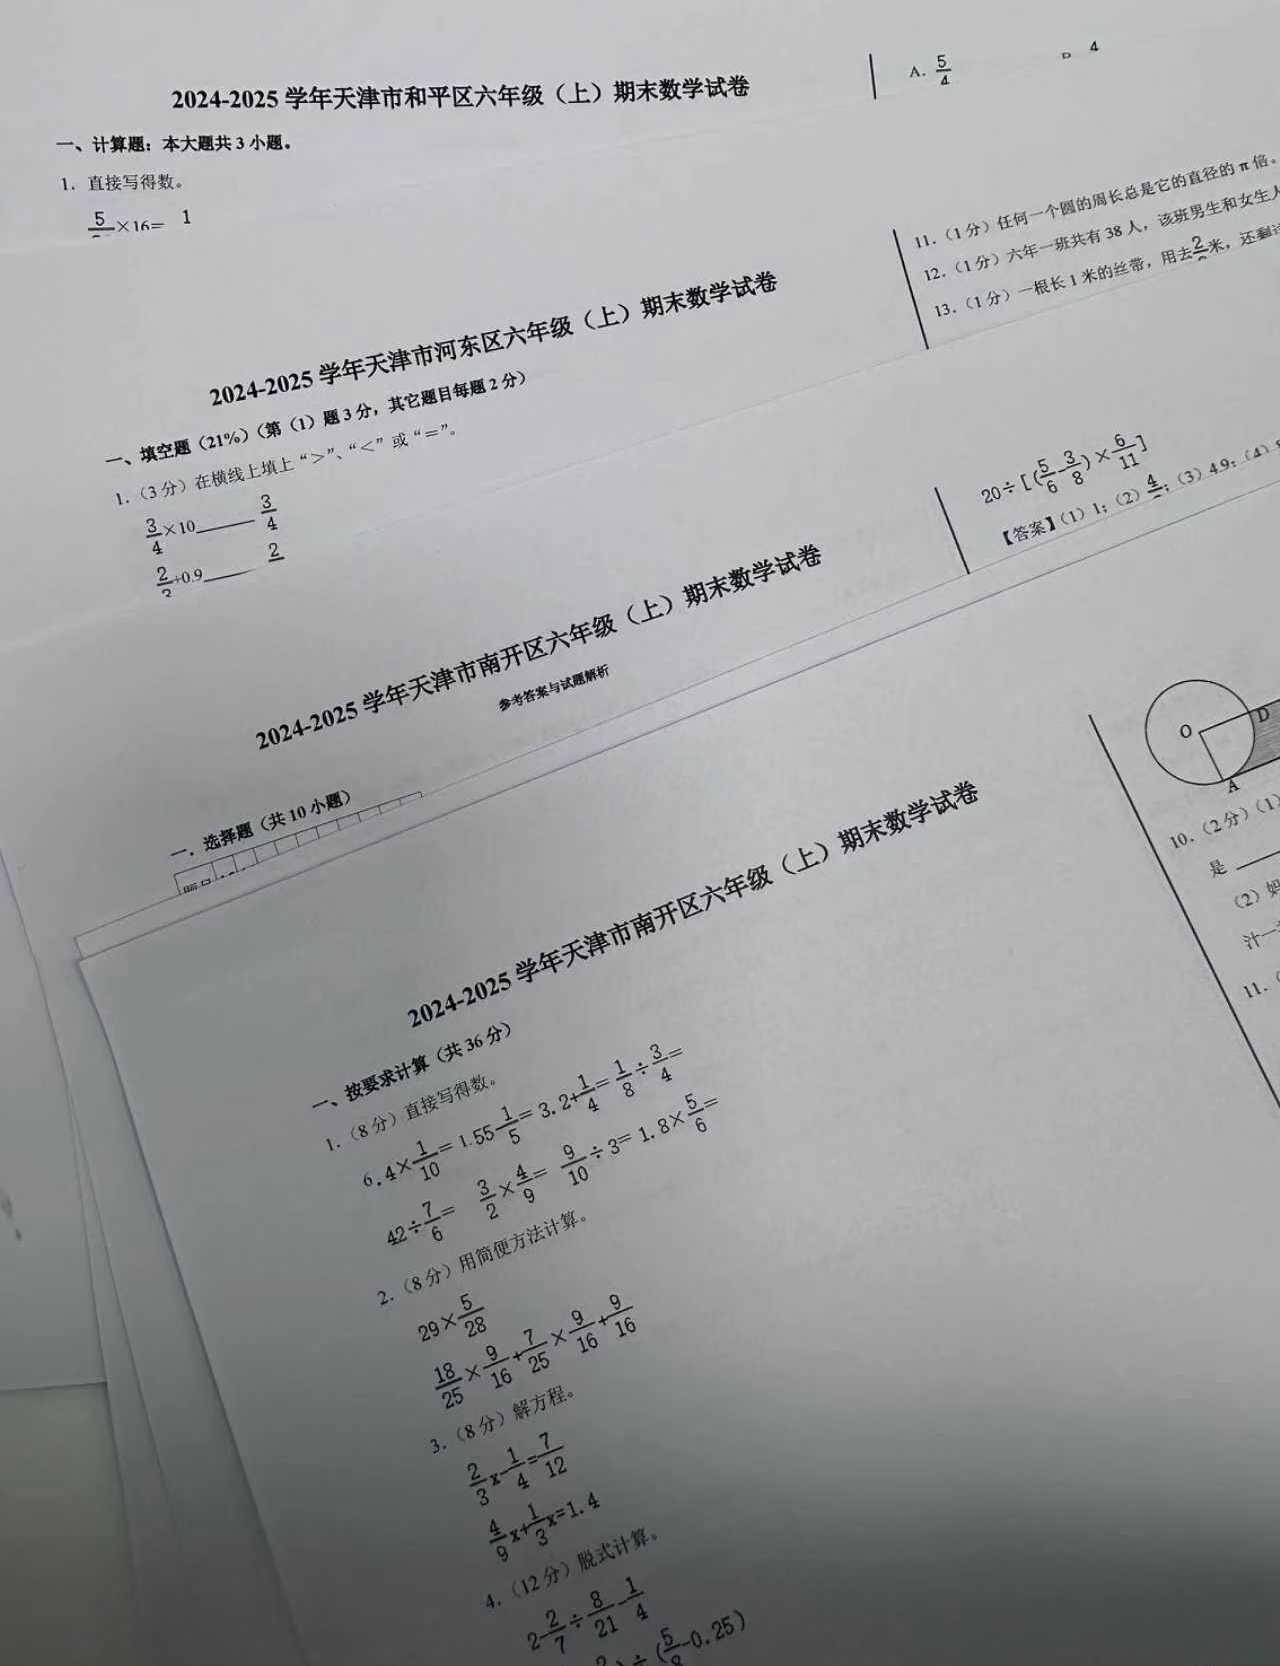 2024-2025 学年天津市和平区六年级（上）期末数学试卷
一、计算题：本大题共 3 小题。
1. 直接写得数。
5 ×16= 1
A. 5/4
4
11.（1 分）任何一个圆的周长总是它的直径的 π 倍。
12.（1 分）六年一班共有 38 人，该班男生和女生人
13.（1 分）一根长 1 米的丝带，用去 2 米，还剩
2024-2025 学年天津市河东区六年级（上）期末数学试卷
一、填空题（21%）（第（1）题 3 分，其它题目每题 2 分）
1.（3 分）在横线上填上 “>”、“<” 或 “=”。
3/4×10____ 3/4
2/3÷0.9____ 2
20÷[(5/6-3/8)×6/11]
【答案】（1）1；（2）4；（3）4.9；（4）
2024-2025 学年天津市南开区六年级（上）期末数学试卷
参考答案与试题解析
一．选择题（共 10 小题）
2024-2025 学年天津市南开区六年级（上）期末数学试卷
一、按要求计算（共 36 分）
1.（8 分）直接写得数。
6.4×1/10= 1.55-1/5= 3.2+1/4= 1/8÷3/4=
42÷7/6= 3/2×4/9= 9/10÷3= 1.8×5/6=
2.（8 分）用简便方法计算。
29×5/28
18/25×9/16+7/25×9/16+9/16
3.（8 分）解方程。
2/3x-1/4=7/12
4/9x+1/3x=1.4
4.（12 分）脱式计算。
2-2/7÷8/21-1/4
÷(5/8-0.25)
O
D
A
10.（2 分）（1）
是
（2）妈
汁一
11.（